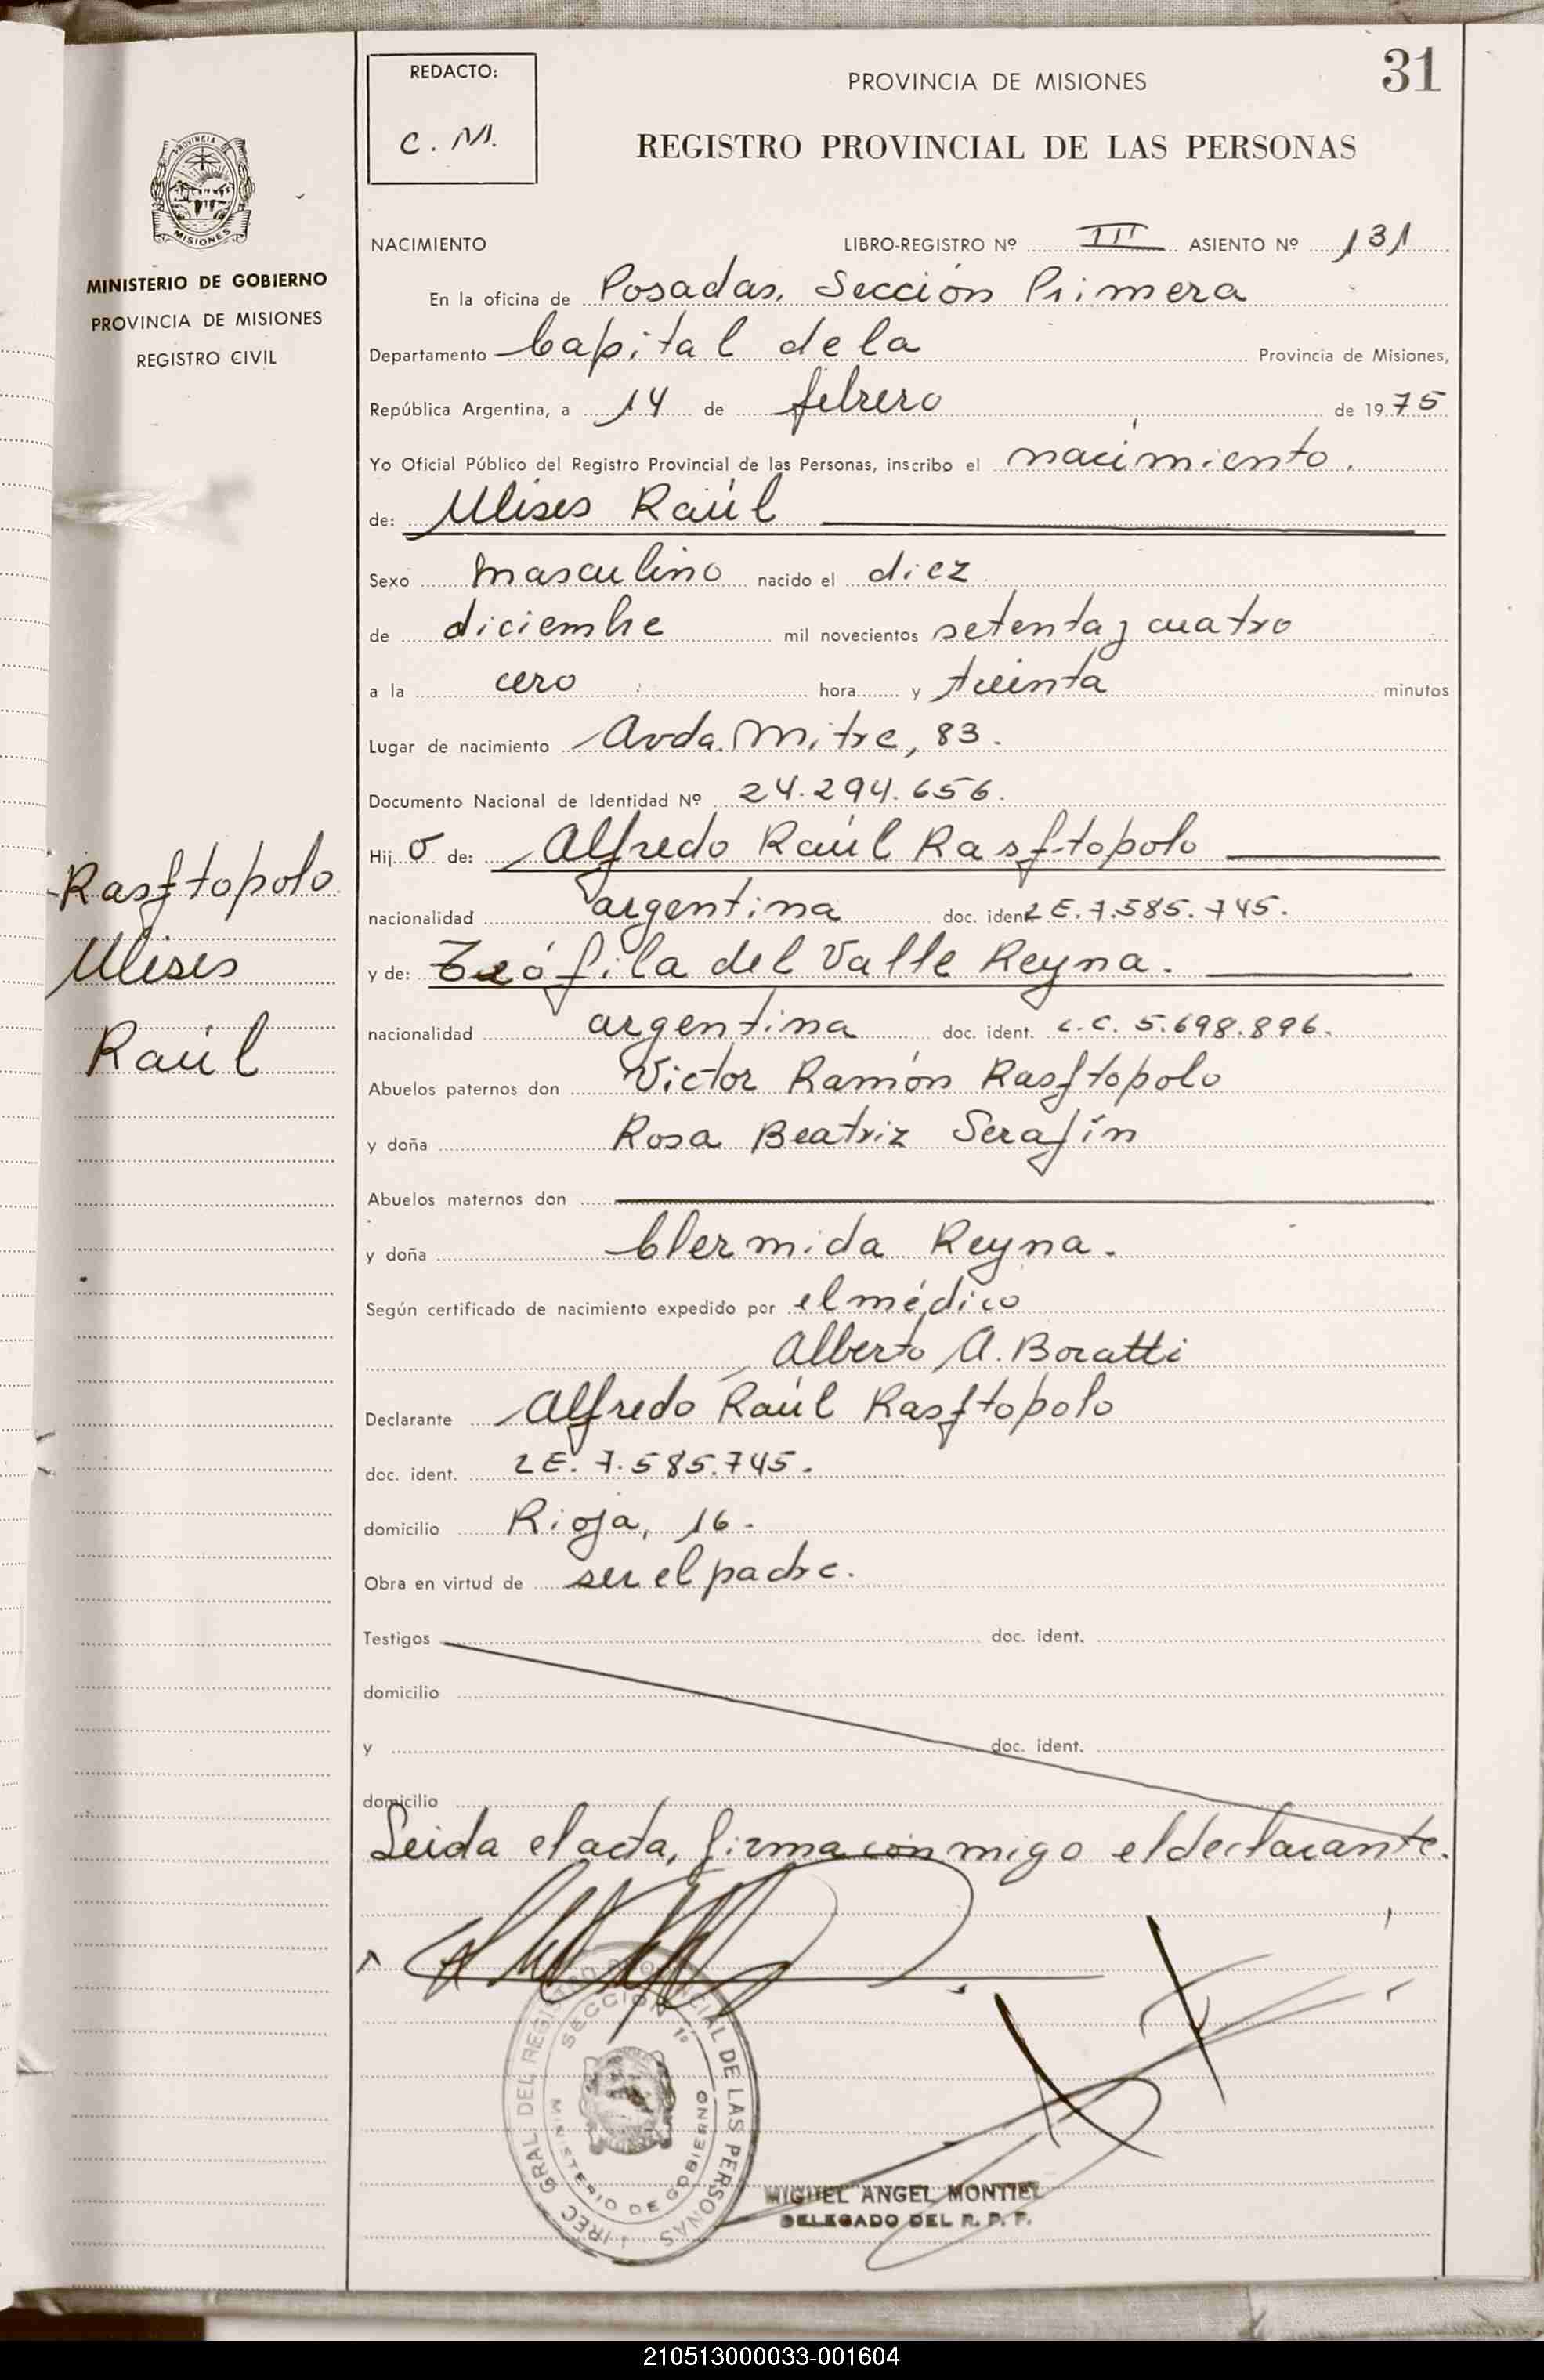 31
REDACTO:
C. M.
PROVINCIA DE MISIONES
REGISTRO PROVINCIAL DE LAS PERSONAS
PROVINCIA DE
MISIONES
MINISTERIO DE GOBIERNO
PROVINCIA DE MISIONES
REGISTRO CIVIL
NACIMIENTO LIBRO-REGISTRO Nº III ASIENTO Nº 131
En la oficina de Posadas, Sección Primera
Departamento Capital de la Provincia de Misiones,
República Argentina, a 14 de febrero de 1975
Yo Oficial Público del Registro Provincial de las Personas, inscribo el nacimiento.
de: Ulises Raúl
Sexo masculino nacido el diez
de diciembre mil novecientos setenta y cuatro
a la cero hora y treinta minutos
Lugar de nacimiento Avda. Mitre, 83.
Documento Nacional de Identidad Nº 24.294.656.
Hijo de: Alfredo Raúl Rasftopolo
nacionalidad argentina doc. ident. LE. 7.585.745.
y de: Teófila del Valle Reyna.
nacionalidad argentina doc. ident. L.C. 5.698.896.
Abuelos paternos don Victor Ramón Rasftopolo
y doña Rosa Beatriz Serafín
Abuelos maternos don
y doña Clermida Reyna.
Según certificado de nacimiento expedido por el médico
Alberto A. Boratti
Declarante Alfredo Raúl Rasftopolo
doc. ident. LE. 7.585.745.
domicilio Rioja, 16.
Obra en virtud de ser el padre.
Testigos doc. ident.
domicilio
y doc. ident.
domicilio
Leida el acta, firma conmigo el declarante.
Rasftopolo
Ulises
Raúl
DIREC. GRAL. DEL REGISTRO PROVINCIAL DE LAS PERSONAS
SECCION 1º
MINISTERIO DE GOBIERNO
MIGUEL ANGEL MONTIEL
DELEGADO DEL R. P. P.
210513000033-001604